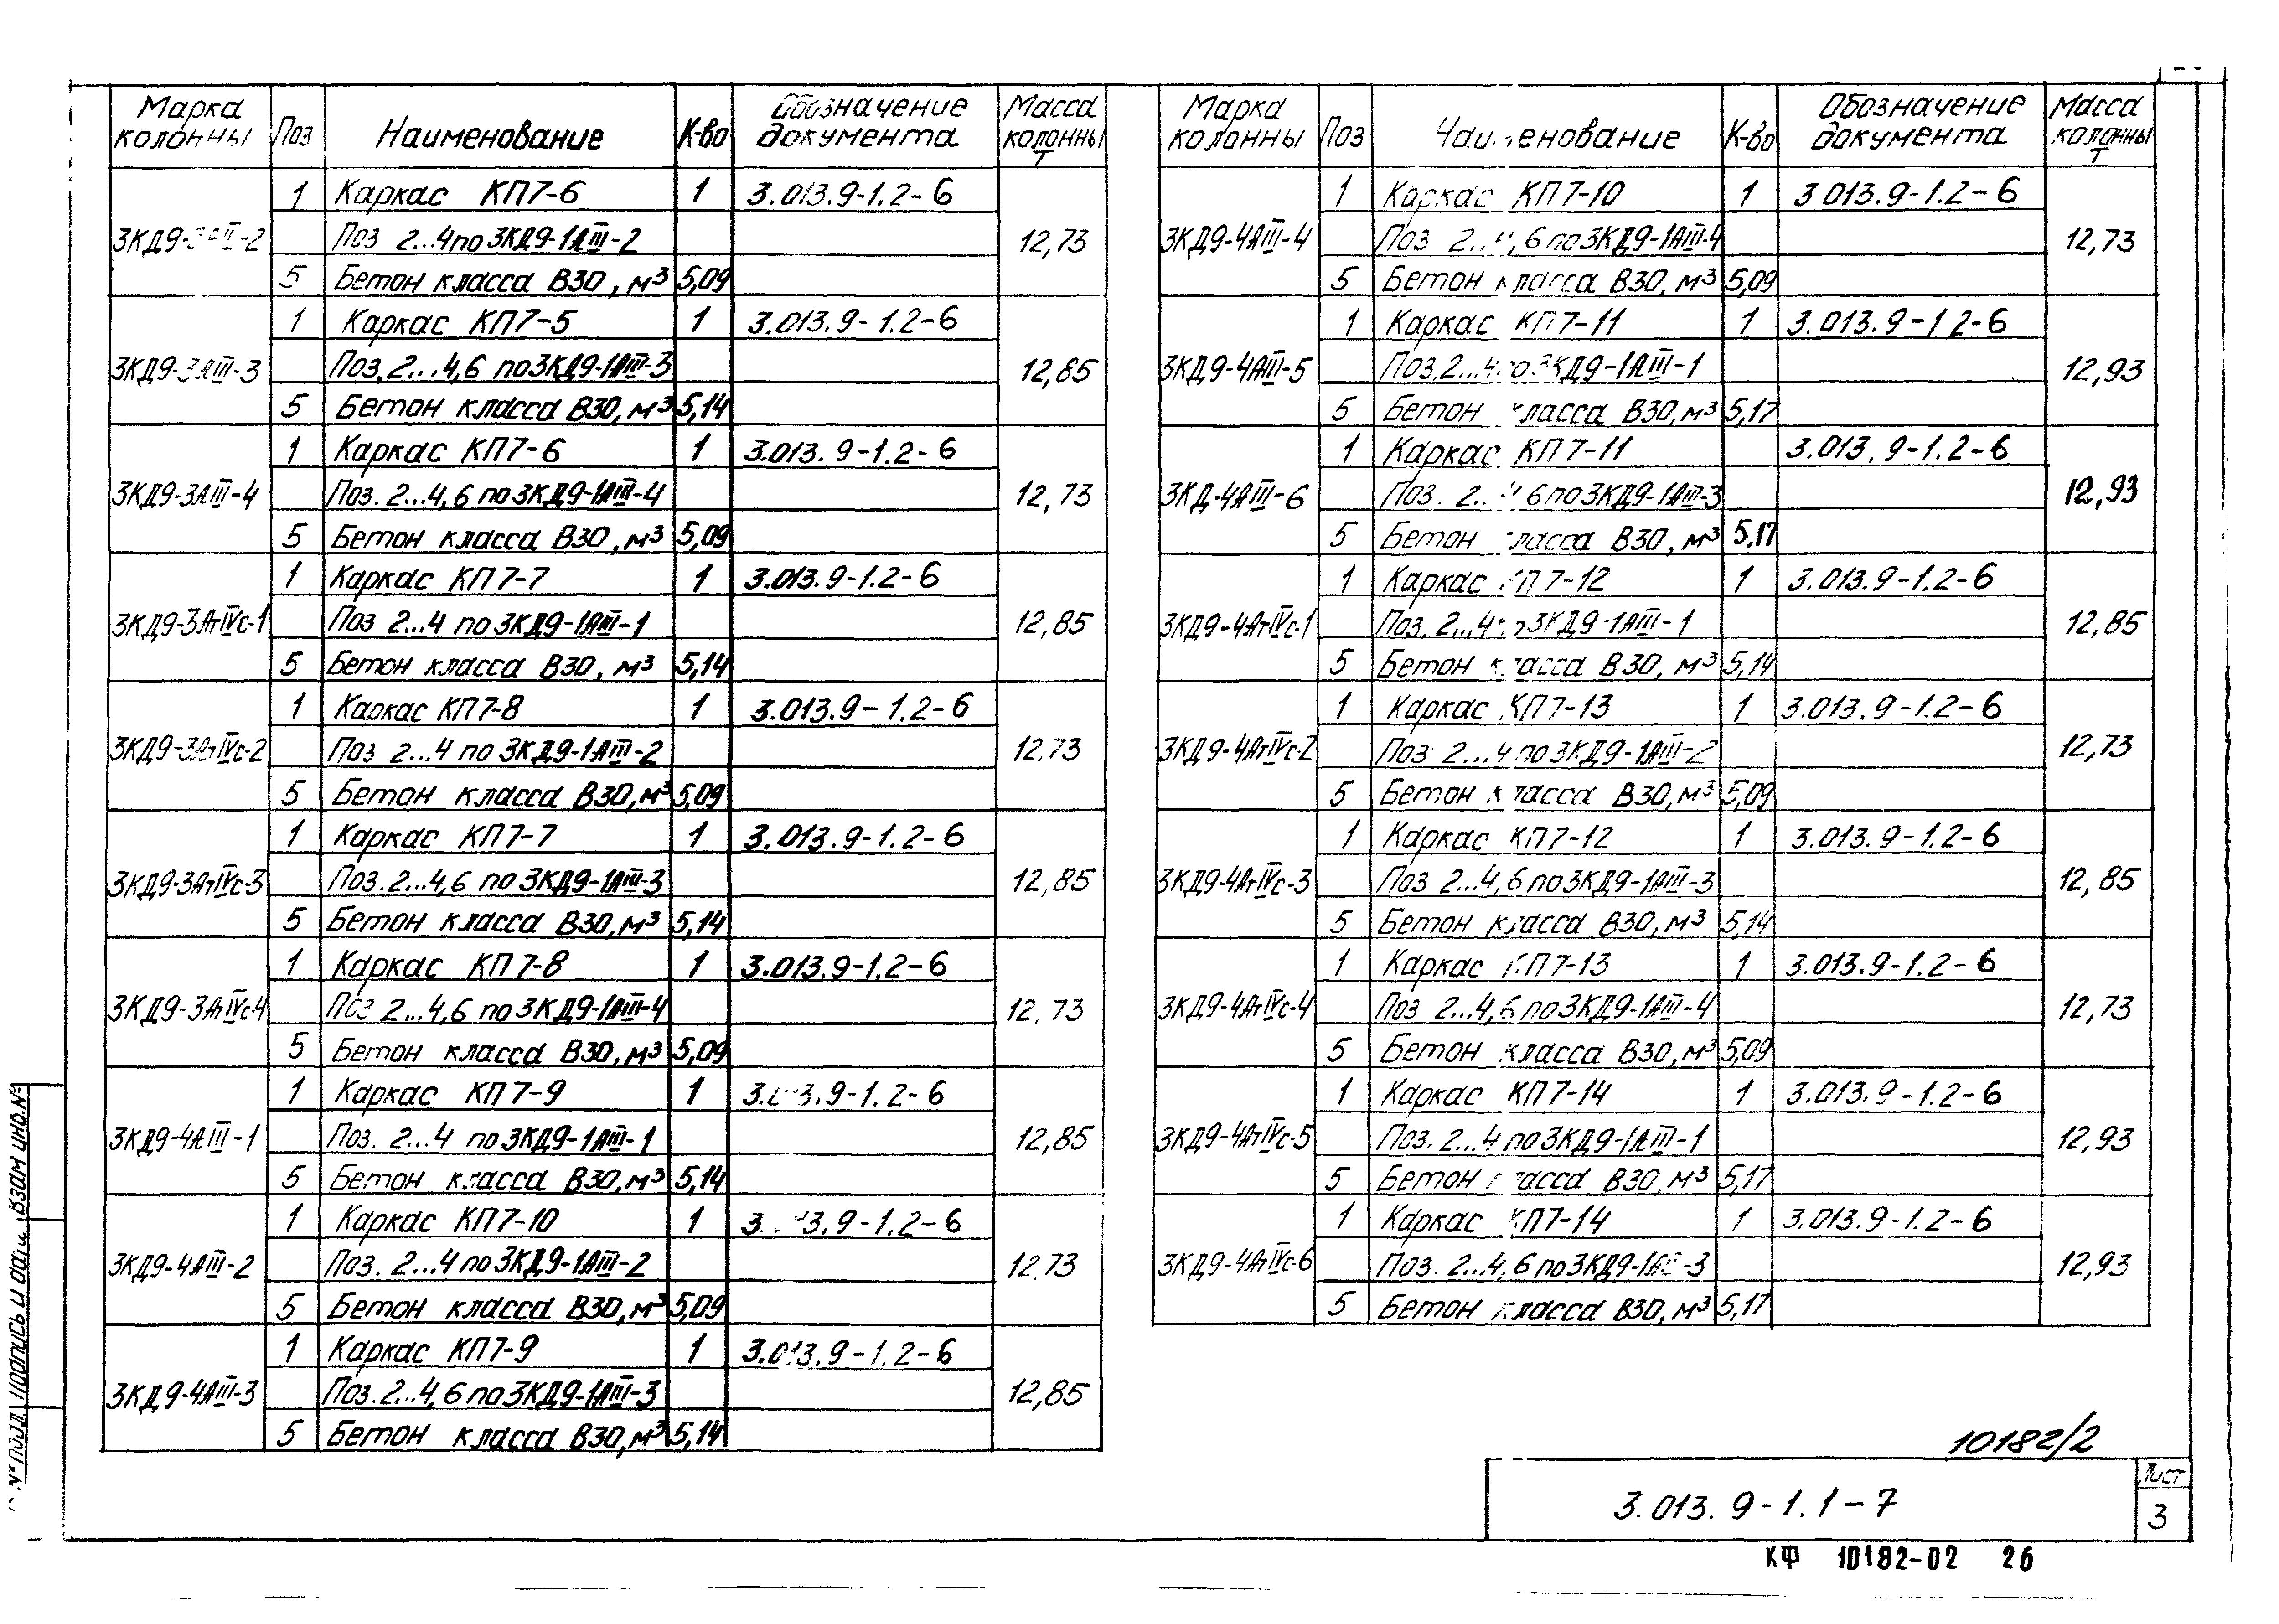 Марка колонны Поз Наименование К-во Обозначение документа Масса колонны Т
1 Каркас КП7-6 1 3.013.9-1.2-6
3КД9-3АIII-2 Поз 2...4 по 3КД9-1АIII-2 12,73
5 Бетон класса В30, м³ 5,09
1 Каркас КП7-5 1 3.013.9-1.2-6
3КД9-3АIII-3 Поз. 2...4,6 по 3КД9-1АIII-3 12,85
5 Бетон класса В30, м³ 5,14
1 Каркас КП7-6 1 3.013.9-1.2-6
3КД9-3АIII-4 Поз. 2...4,6 по 3КД9-1АIII-4 12,73
5 Бетон класса В30, м³ 5,09
1 Каркас КП7-7 1 3.013.9-1.2-6
3КД9-3АтIVс-1 Поз 2...4 по 3КД9-1АIII-1 12,85
5 Бетон класса В30, м³ 5,14
1 Каркас КП7-8 1 3.013.9-1.2-6
3КД9-3АтIVс-2 Поз 2...4 по 3КД9-1АIII-2 12.73
5 Бетон класса В30, м³ 5,09
1 Каркас КП7-7 1 3.013.9-1.2-6
3КД9-3АтIVс-3 Поз. 2...4,6 по 3КД9-1АIII-3 12,85
5 Бетон класса В30, м³ 5,14
1 Каркас КП7-8 1 3.013.9-1.2-6
3КД9-3АтIVс-4 Поз 2...4,6 по 3КД9-1АIII-4 12,73
5 Бетон класса В30, м³ 5,09
1 Каркас КП7-9 1 3.013.9-1.2-6
3КД9-4АIII-1 Поз. 2...4 по 3КД9-1АIII-1 12,85
5 Бетон класса В30, м³ 5,14
1 Каркас КП7-10 1 3.013.9-1.2-6
3КД9-4АIII-2 Поз. 2...4 по 3КД9-1АIII-2 12.73
5 Бетон класса В30, м³ 5,09
1 Каркас КП7-9 1 3.013.9-1.2-6
3КД9-4АIII-3 Поз. 2...4,6 по 3КД9-1АIII-3 12,85
5 Бетон класса В30, м³ 5,14
Марка колонны Поз Наименование К-во Обозначение документа Масса колонны Т
1 Каркас КП7-10 1 3.013.9-1.2-6
3КД9-4АIII-4 Поз 2...4,6 по 3КД9-1АIII-4 12,73
5 Бетон класса В30, м³ 5,09
1 Каркас КП7-11 1 3.013.9-1.2-6
3КД9-4АIII-5 Поз. 2...4 по 3КД9-1АIII-1 12,93
5 Бетон класса В30, м³ 5,17
1 Каркас КП7-11 3.013.9-1.2-6
3КД-4АIII-6 Поз. 2...4,6 по 3КД9-1АIII-3 12,93
5 Бетон класса В30, м³ 5,17
1 Каркас КП7-12 1 3.013.9-1.2-6
3КД9-4АтIVс-1 Поз. 2...4 по 3КД9-1АIII-1 12,85
5 Бетон класса В30, м³ 5,14
1 Каркас КП7-13 1 3.013.9-1.2-6
3КД9-4АтIVс-2 Поз 2...4 по 3КД9-1АIII-2 12,73
5 Бетон класса В30, м³ 5,09
1 Каркас КП7-12 1 3.013.9-1.2-6
3КД9-4АтIVс-3 Поз 2...4,6 по 3КД9-1АIII-3 12,85
5 Бетон класса В30, м³ 5,14
1 Каркас КП7-13 1 3.013.9-1.2-6
3КД9-4АтIVс-4 Поз 2...4,6 по 3КД9-1АIII-4 12,73
5 Бетон класса В30, м³ 5,09
1 Каркас КП7-14 1 3.013.9-1.2-6
3КД9-4АтIVс-5 Поз. 2...4 по 3КД9-1АIII-1 12,93
5 Бетон класса В30, м³ 5,17
1 Каркас КП7-14 1 3.013.9-1.2-6
3КД9-4АтIVс-6 Поз. 2...4,6 по 3КД9-1АIII-3 12,93
5 Бетон класса В30, м³ 5,17
10182/2
3.013.9-1.1-7
Лист
3
КФ 10182-02 26
№ подл. Подпись и дата Взам инв.№